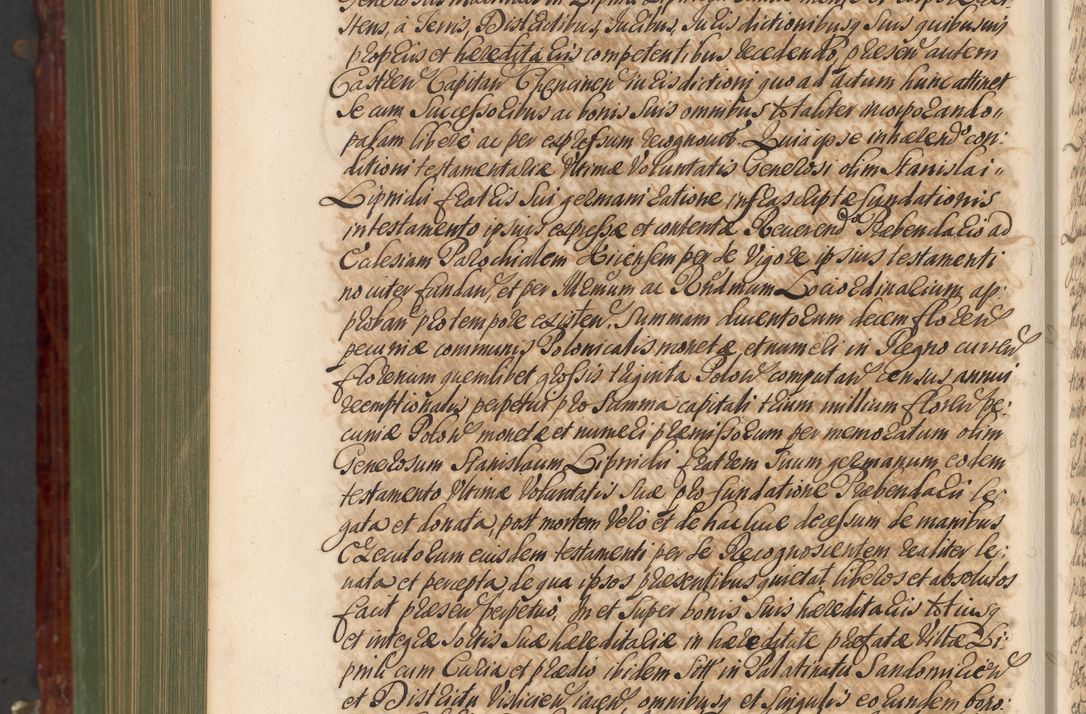 stens, a Terris, Districtibus, Ducibus, Jurisdictionibusq suis quibusuis
proprijs et hæreditarijs competentibus recedendo, præsen autem
Castren Capitan Chencinen Jurisdictioni quo ad actum hunc attinet
se cum Successoribus ac bonis suis omnibus totaliter incorporando
palam libere ac per expressum recognouit. Quia ipse inhærend con:
ditioni testamentariæ Vltimæ Voluntatis Generosi olim Stanislai
Lipnicki fratris sui germani ratione infrascriptæ fundationis
in testamento ipsius expressæ et contentæ Reuerend Præbendario ad
Ecclesiam Parochialem per se Vigore ipsius testamenti
nouiter fundan, et per Illmum ac Rndmum Loci Ordinarium ap:
proban pro tempore existen. Summam ducentorum decem floren
pecuniæ communis Polonicalis monetæ, et numeri in Regno curren
florenum quemlibet grossis triginta Polon computan census annui
reemptionalis perpetui pro Summa capitali trium millium floren pe:
cuniæ Polon monetæ et numeri præmissorum per memoratum olim
Generosum Stanislaum Lipnicki fratrem suum germanum eodem
testamento Vltimæ Voluntatis suæ pro fundatione Præbendarii le:
gata et donata, post mortem Vero et de hac luce decessum de manibus
Executorum eiusdem testamenti per se Recognoscentem realiter le:
uata et percepta, de qua ipsos præsentibus quietat liberos et absolutos
facit præsen perpetuo, In et super bonis suis hæreditariis totiusq
et integræ sortis suæ hæreditariæ in hæreditate præfatæ Villæ Li:
pnik cum Curia et prædio ibidem Sitt in Palatinatu Sandomirien
et Districtu Vislicien iacen, omnibusq et singulis eorundem bono: